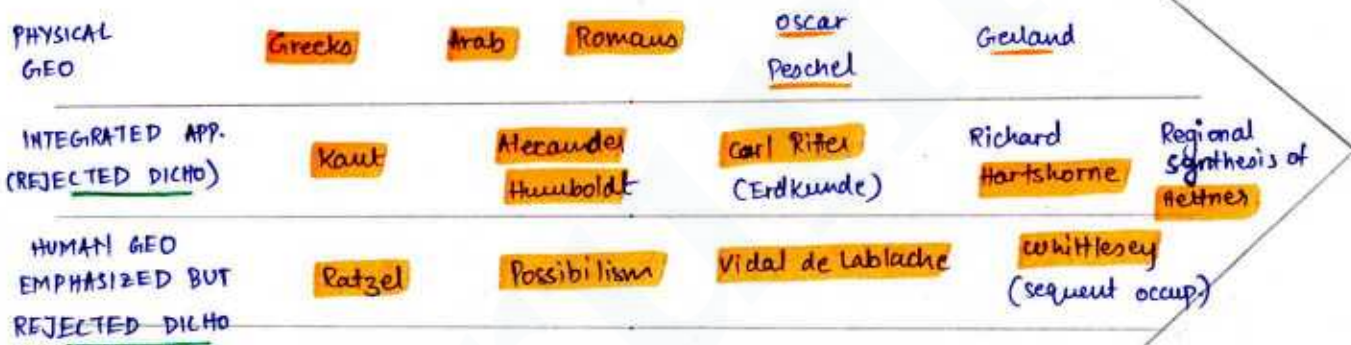 PHYSICAL GEO Greeks Arab Romans Oscar Peschel Gerland
INTEGRATED APP. (REJECTED DICHO) Kant Alexander Humboldt Carl Ritter (Erdkunde) Richard Hartshorne Regional synthesis of Hettner
HUMAN GEO EMPHASIZED BUT REJECTED DICHO Ratzel Possibilism Vidal de Lablache Whittlesey (sequent occup.)